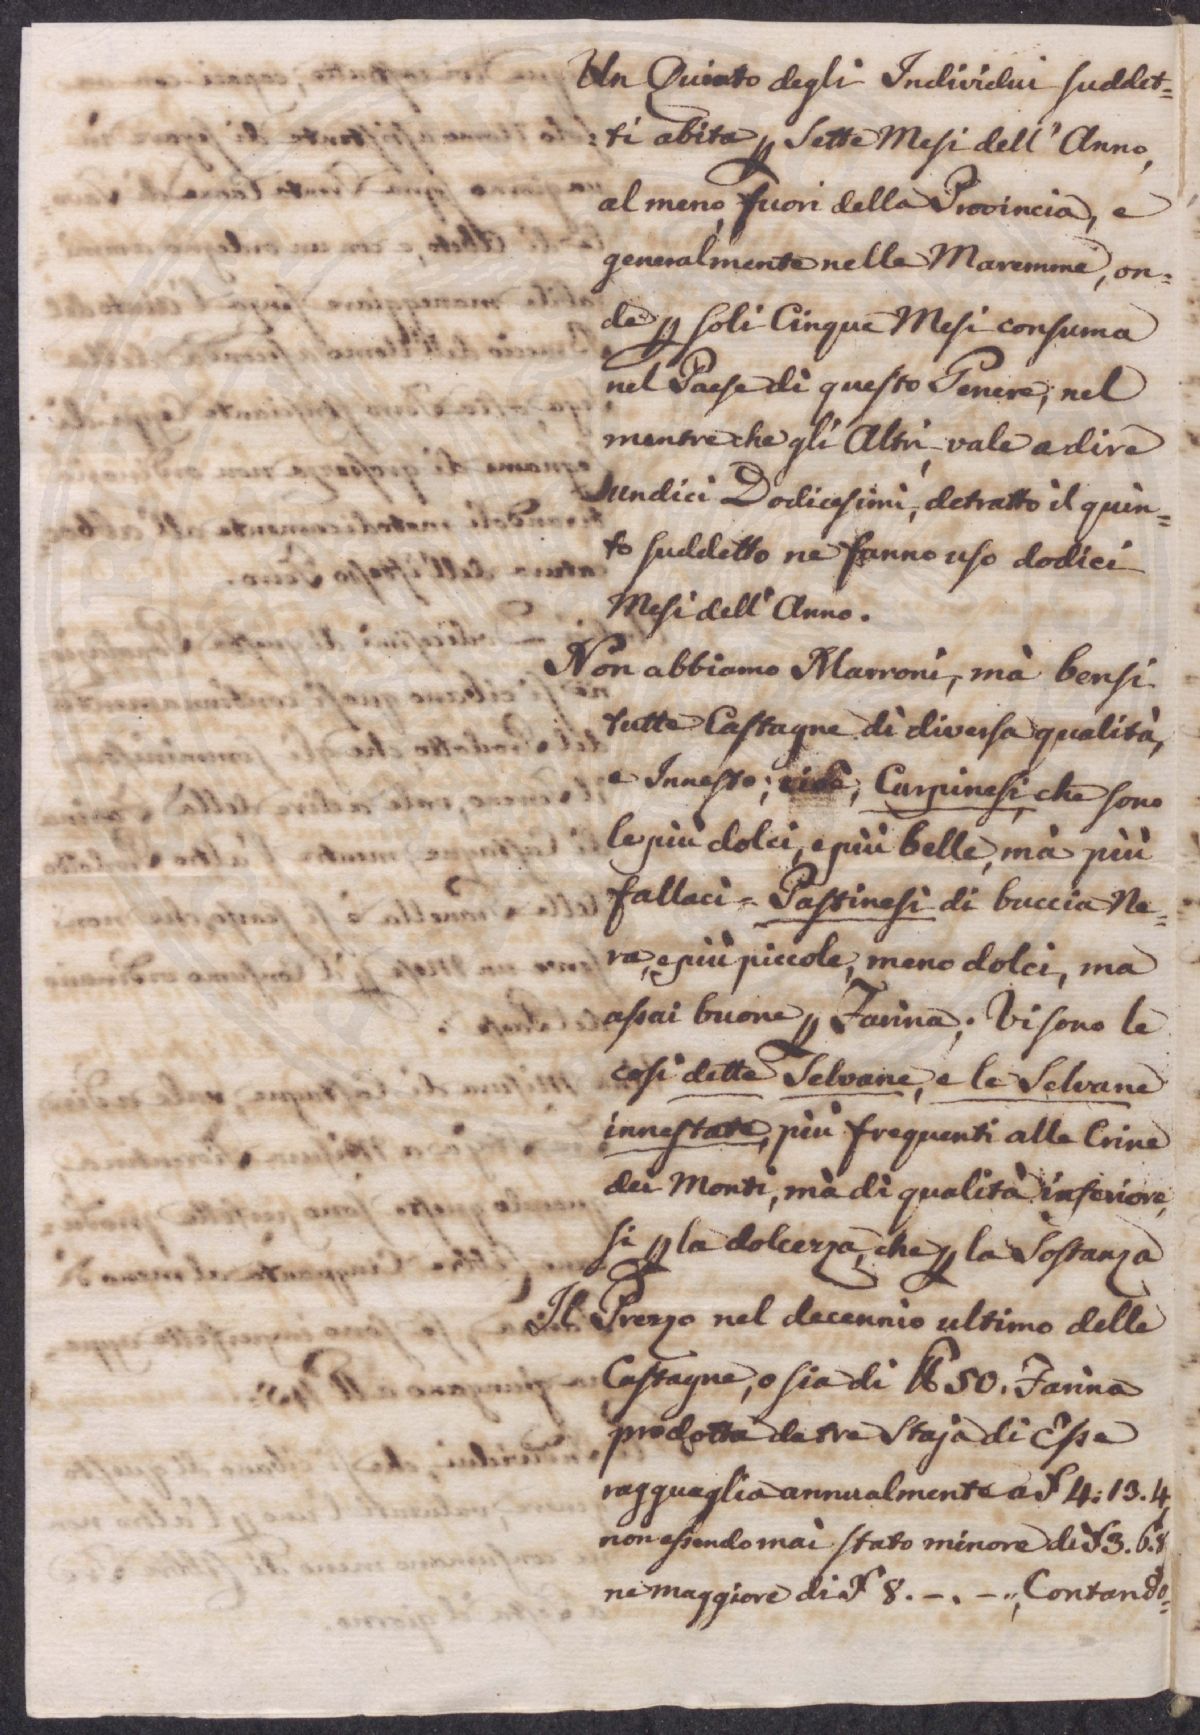 Un Quinto degli Individui suddet=
=ti abita p Sette Mesi dell' Anno,
al meno, fuori della Provincia, e
generalmente nelle Maremme, on=
de p soli Cinque Mesi consuma
nel Paese di questo Genere, nel
mentre che gli Altri, vale a dire
undici Dodicesimi, detratto il quin=
to suddetto ne fanno uso dodici
Mesi dell' Anno.
Non abbiamo Marroni, mà bensi
tutte Castagne di diversa qualità,
e Innesto; cioè, Carpinesi, che sono
le più dolci, e più belle, mà più
fallaci = Pastinesi di buccia Ne=
ra, e più piccole, meno dolci, ma
assai buone p Farina; Vi sono le
così dette Selvane, e le Selvane
innestate, più frequenti alle Crine
dei Monti, mà di qualità inferiore,
si p la dolcezza, che p la Sostanza
Il Prezzo nel decennio ultimo delle
Castagne, o sia di ℔ 50. Farina
prodotta da tre Staja di Esse
ragguaglia annualmente a £ 4:13.4,
non essendo mai stato minore di £3.6.8
ne maggiore di £ 8. -. -.., Contando=